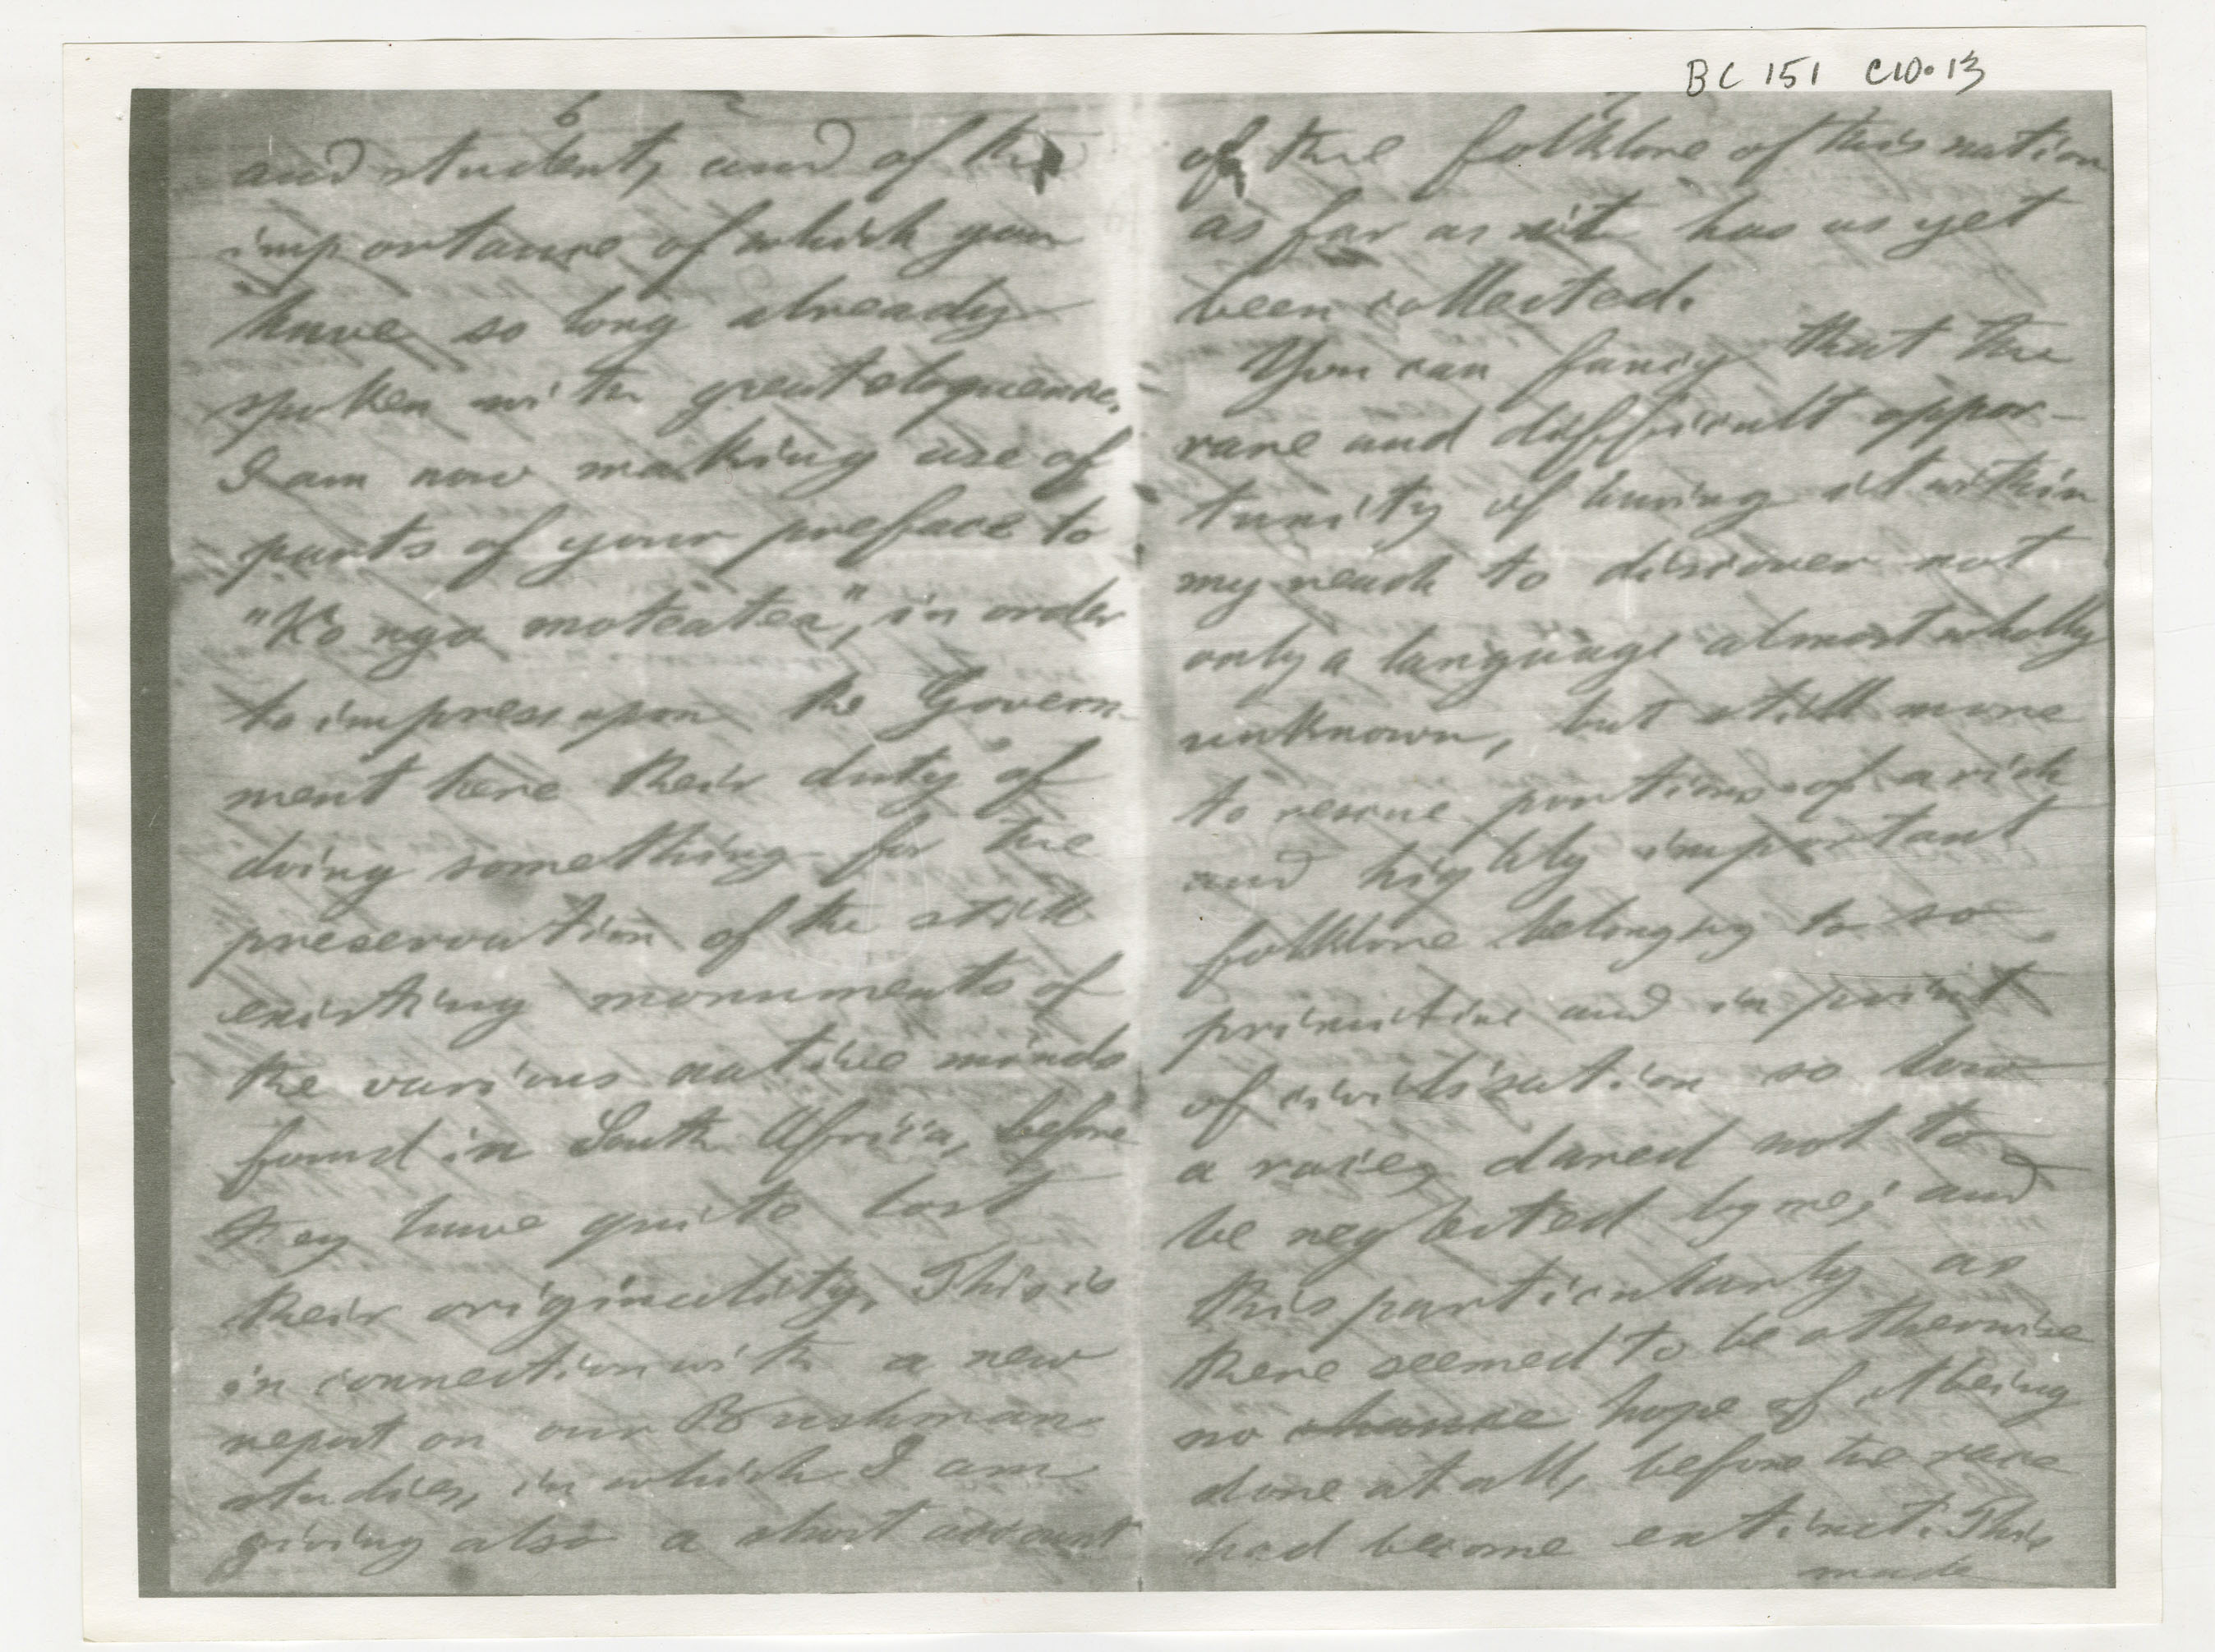 BC 151 C10.13
6
and student, and of the
importance of which you
have so long already
spoken with great eloquence.
I am now making use of
parts of your preface to
"Ko nga moteatea", in order
to impress upon the Govern-
ment here their duty of
doing something for the
preservation of the still
existing monuments of
the various native minds
found in South Africa, before
they have quite lost
their originality. This is
in connection with a new
report on our Bushman
studies, in which I am
giving also a short account
7
of the folklore of this nation
as far as it has as yet
been collected.
You can fancy that the
rare and difficult oppor-
tunity of having it within
my reach to discover not
only a language almost wholly
unknown, but still more
to rescue portions of a rich
and highly important
folklore belonging to so
primitive and in point
of civilisation so low
a race, dared not to
be neglected by me; and
this particularly as
there seemed to be otherwise
no chance hope of it being
done at all, before the race
had become extinct. This
made